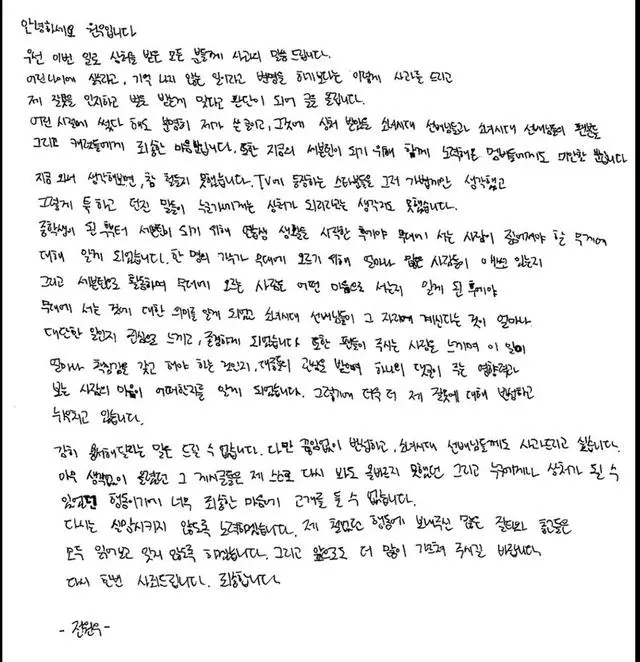 안녕하세요 원우입니다
우선 이번 일로 상처를 받은 모든 분들께 사과의 말씀 드립니다.
어린나이에 썼다고, 기억 나지 않는 일이라고 변명을 하기보다는 이렇게 사과를 드리고
제 잘못을 인지하고 벌도 받는게 맞다고 판단이 되어 글을 올립니다.
어린 시절에 썼다 해도 분명히 제가 쓴 글이고, 그것에 상처 받았을 소녀시대 선배님들과 소녀시대 선배님들의 팬분들
그리고 캐럿들에게 죄송한 마음뿐입니다. 또한 지금의 세븐틴이 되기 위해 함께 노력해온 멤버들에게도 미안할 뿐입니다
지금 와서 생각해보면, 참 철들지 못했습니다. TV에 등장하는 스타분들을 그저 가볍게만 생각했고
그렇게 툭 하고 던진 말들이 누군가에게는 상처가 되리라고는 생각지도 못했습니다.
중학생이 된 후부터 세븐틴이 되기 위해 연습생 생활을 시작한 후에야 무대에 서는 사람이 짊어져야 할 무게에
대해 알게 되었습니다. 한 명의 가수가 무대에 오르기 위해 얼마나 많은 사람들이 애쓰고 있는지
그리고 세븐틴으로 활동하며 무대에 오르는 사람은 어떤 마음으로 서는지 알게 된 후에야
무대에 서는 것에 대한 의미를 알게 되었고 소녀시대 선배님들이 그 자리에 계신다는 것이 얼마나
대단한 일인지 진심으로 느끼고, 존경하게 되었습니다 또한 팬들이 주시는 사랑을 느끼며 이 일이
얼마나 책임감을 갖고 해야 하는 것인지, 대중들의 관심을 받으며 하나의 댓글이 주는 영향력과
보는 사람의 마음이 어떠한지를 알게 되었습니다. 그렇기에 더욱 더 제 잘못에 대해 반성하고
뉘우치고 있습니다.
감히 용서해달라는 말은 드릴 수 없습니다. 다만 끊임없이 반성하고, 소녀시대 선배님들께도 사과드리고 싶습니다.
아무 생각없이 올렸었고 그 게시글들은 제 스스로 다시 봐도 올바르지 못했던 그리고 누구에게나 상처가 될 수
있었던 행동이기에 너무 죄송한 마음에 고개를 들 수 없습니다.
다시는 실망시키지 않도록 노력하겠습니다. 제 철없던 행동에 보내주신 많은 질타와 충고들은
모두 읽어보고 잊지 않도록 하겠습니다. 그리고 앞으로도 더 많이 가르쳐 주시길 바랍니다.
다시 한번 사죄드립니다. 죄송합니다.
- 전원우 -